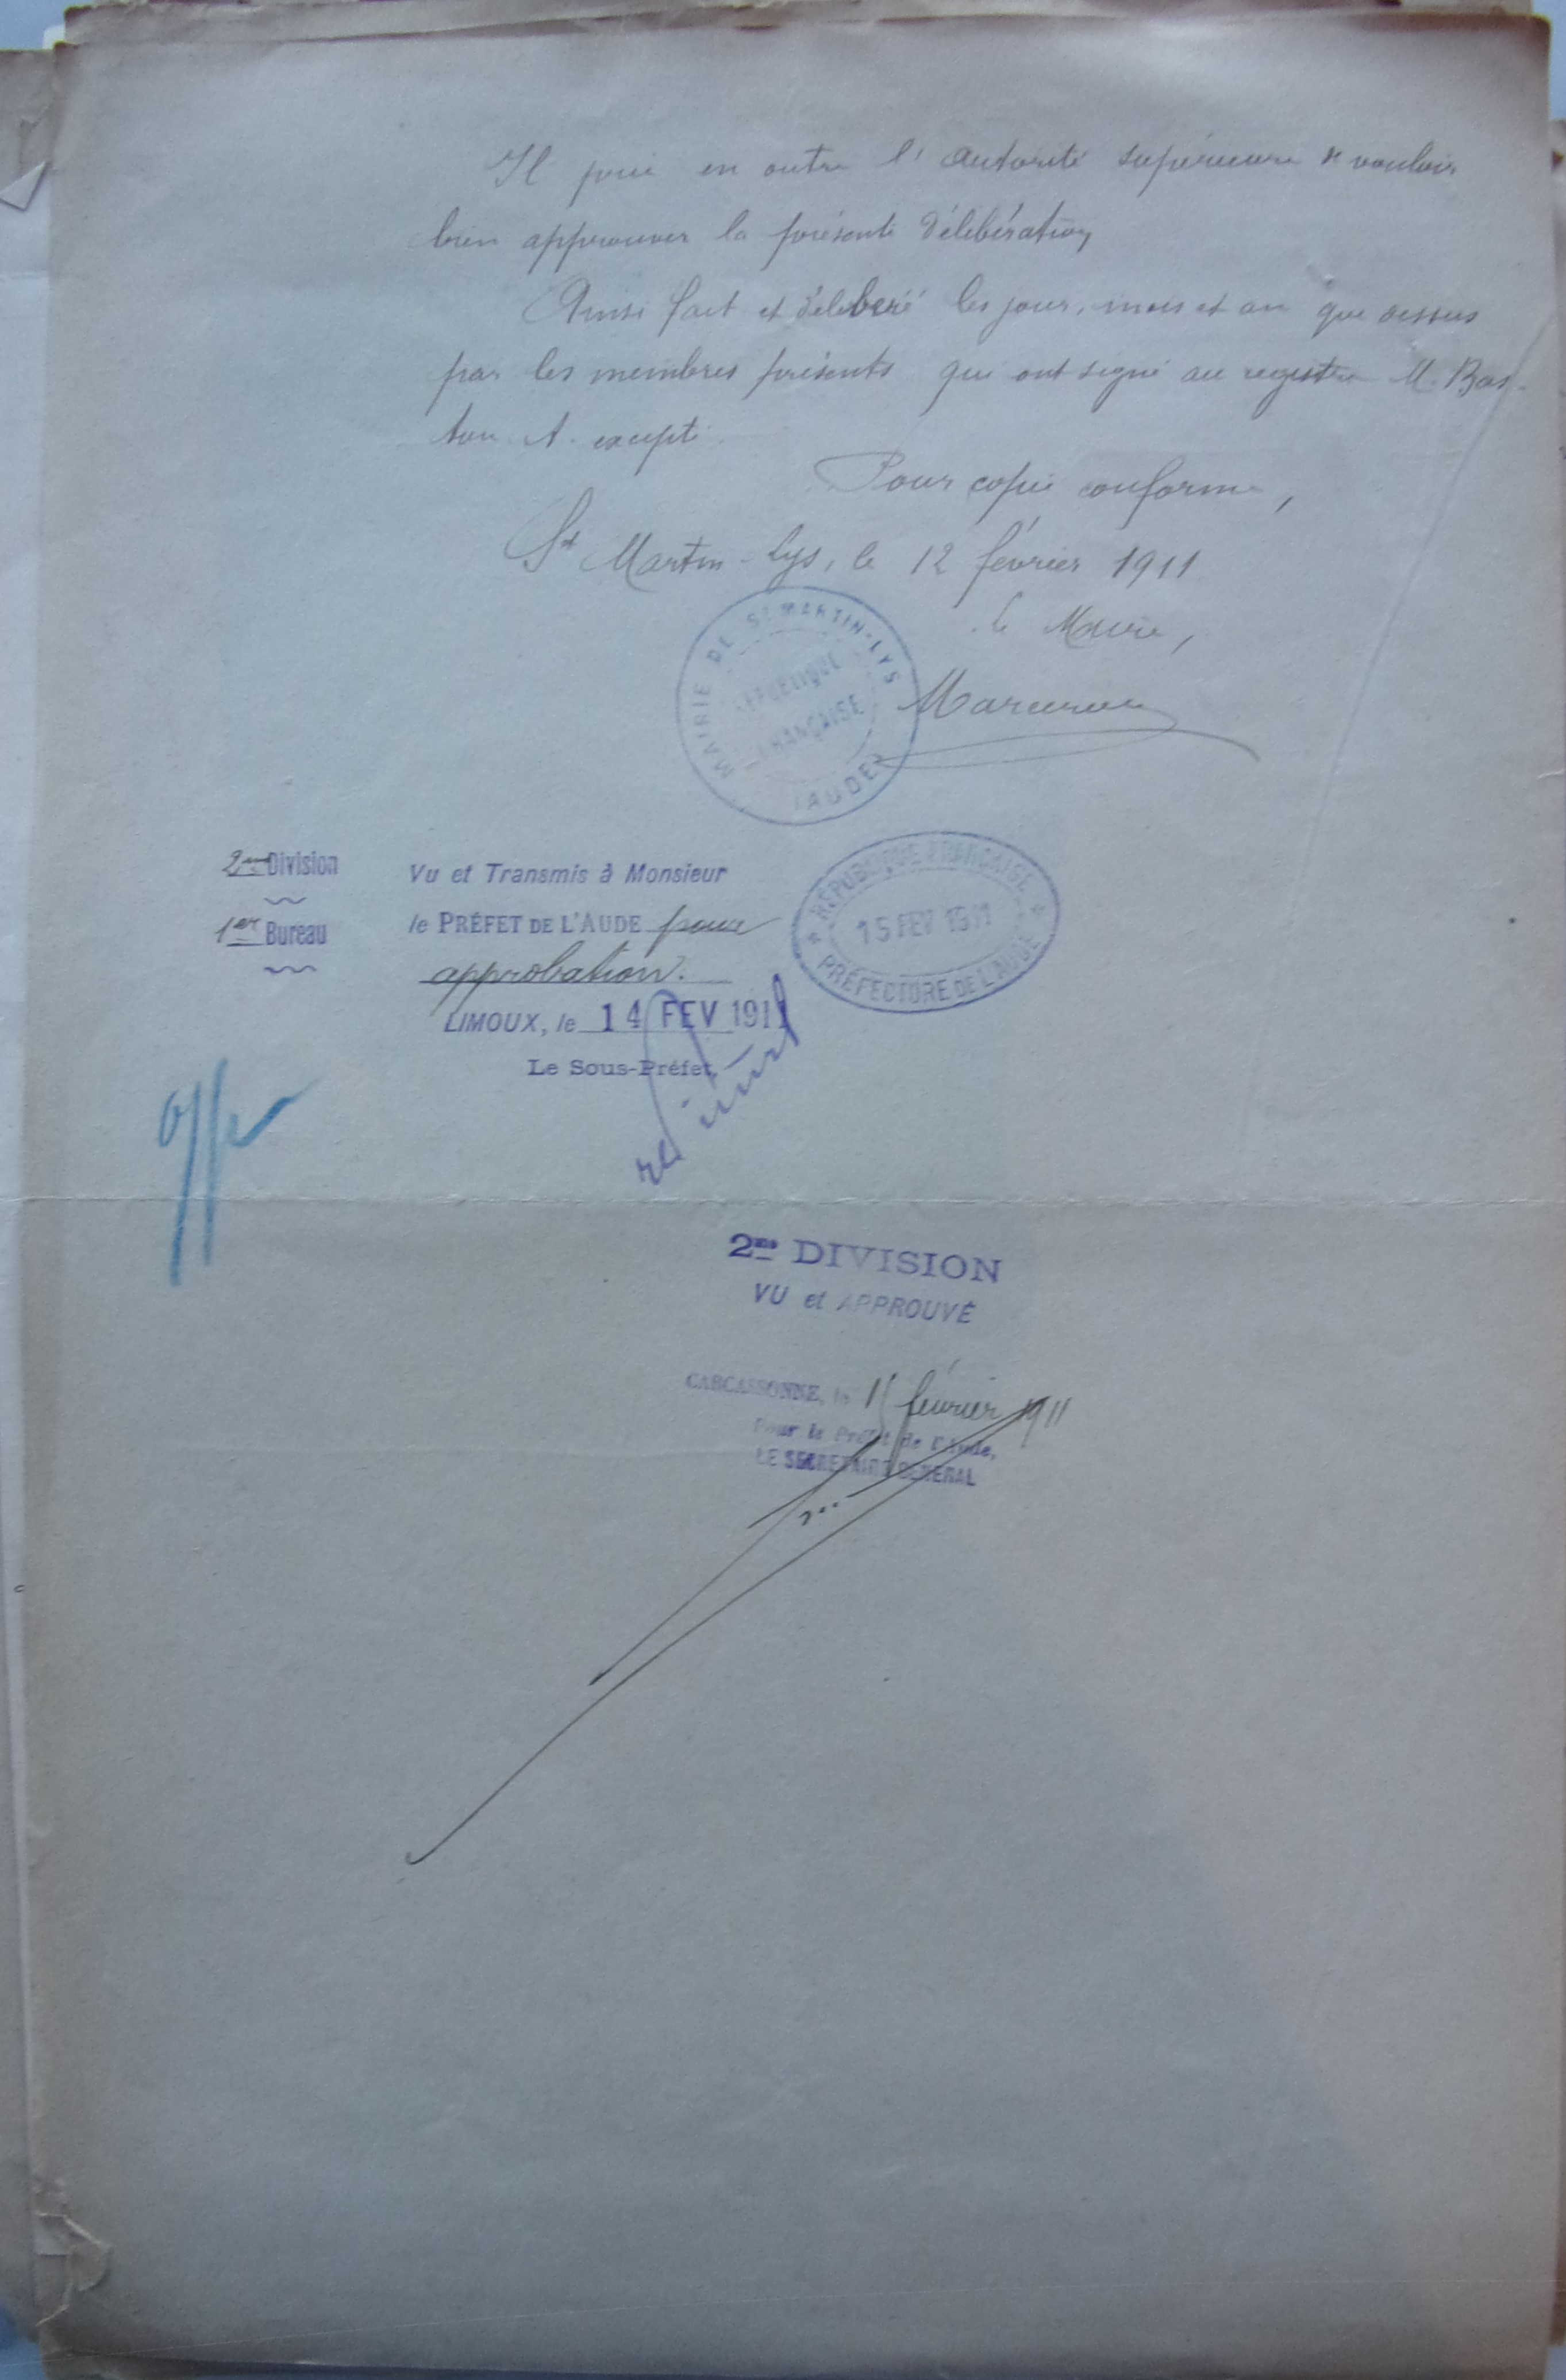 Il prie en outre l'autorité supérieure de vouloir
bien approuver la présente délibération
Ainsi fait et délibéré les jour, mois et an que dessus
par les membres présents qui ont signé au registre M. Bas-
tou A. excepté.
Pour copie conforme,
St Martin-Lys, le 12 février 1911
Le Maire,
MAIRIE DE St MARTIN-LYS
RÉPUBLIQUE
FRANÇAISE
(AUDE)
2me Division
1er Bureau
Vu et Transmis à Monsieur
le PRÉFET DE L'AUDE pour
approbation.
LIMOUX, le 14 FEV 1911
Le Sous-Préfet,
RÉPUBLIQUE FRANÇAISE
15 FEV 1911
PRÉFECTURE DE L'AUDE
2me DIVISION
VU et APPROUVÉ
CARCASSONNE, le 15 février 1911
Pour le Préfet de l'Aude,
LE SECRÉTAIRE GÉNÉRAL